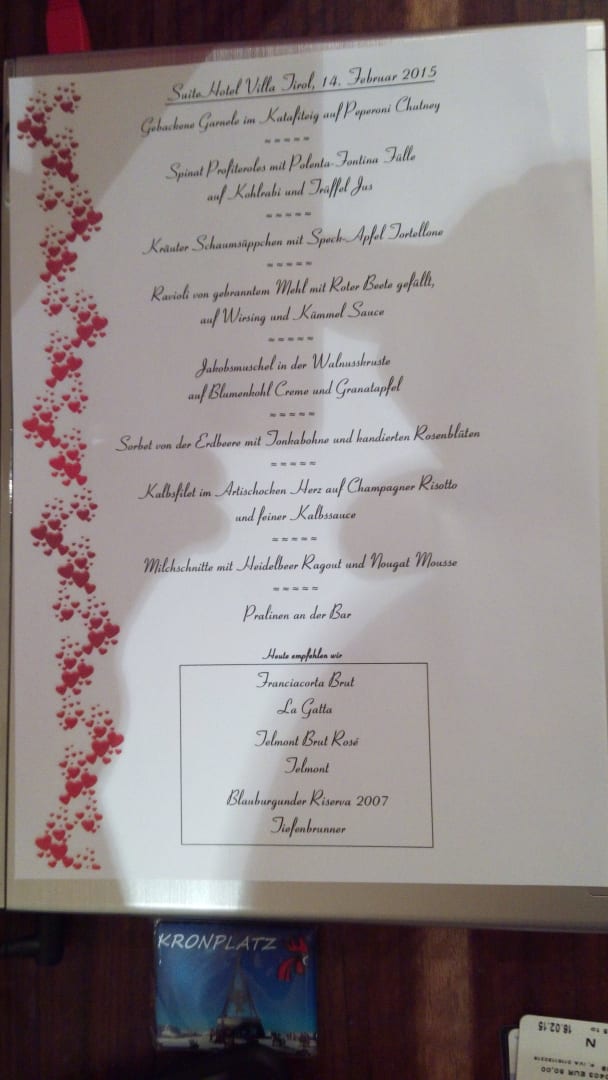 Suite Hotel Villa Tirol, 14. Februar 2015
Gebackene Garnele im Katafiteig auf Peperoni Chutney
=====
Spinat Profiteroles mit Polenta-Fontina Fülle
auf Kohlrabi und Trüffel Jus
=====
Kräuter Schaumsüppchen mit Speck-Apfel Tortellone
=====
Ravioli von gebranntem Mehl mit Roter Beete gefüllt,
auf Wirsing und Kümmel Sauce
=====
Jakobsmuschel in der Walnusskruste
auf Blumenkohl Creme und Granatapfel
=====
Sorbet von der Erdbeere mit Tonkabohne und kandierten Rosenblüten
=====
Kalbsfilet im Artischocken Herz auf Champagner Risotto
und feiner Kalbssauce
=====
Milchschnitte mit Heidelbeer Ragout und Nougat Mousse
=====
Pralinen an der Bar
Heute empfehlen wir
Franciacorta Brut
La Gatta
Telmont Brut Rosé
Telmont
Blauburgunder Riserva 2007
Tiefenbrunner
KRONPLATZ
16.02.15
N
EUR 50,00